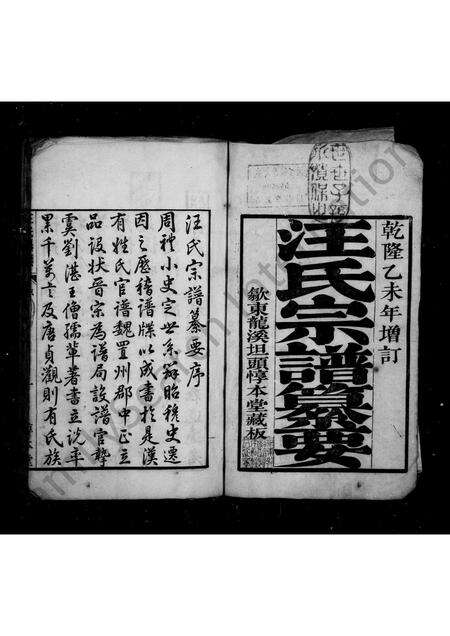 乾隆乙未年增訂
汪氏宗譜纂要
歙東龍溪坦頭惇本堂藏板
汪氏宗譜纂要序
周禮小史定世系辨昭穆史遷
因之歷稽譜牒以成書於是漢
有姓氏官譜魏置州郡中正立
品設狀晉宗為譜局設譜官聾
虞劉湛王僧孺輩著書立說平
累千萬言及唐貞觀則有氏族